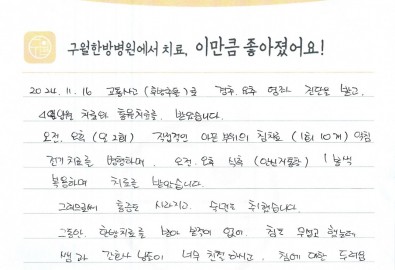 구월한방병원에서 치료, 이만큼 좋아졌어요!
2024. 11. 16 교통사고 ( )로 경추, 요추 염좌 진단을 받고,
치료와 통원치료를 받았습니다.
오전, 오후 (일 2회) 직접적인 아픈 부위의 침치료 (1회 10개) 약침
전기치료를 병행하며, 오전, 오후 식후 1봉씩
복용하며 치료를 받았습니다.
그럼으로써 통증도 사라지고, 숙면도 취했습니다.
그동안, 한방치료를 받아 본적이 없어, 침도 무섭고 했는데
쌤과 간호사 님들이 너무 친절하시고, 침에 대한 두려움